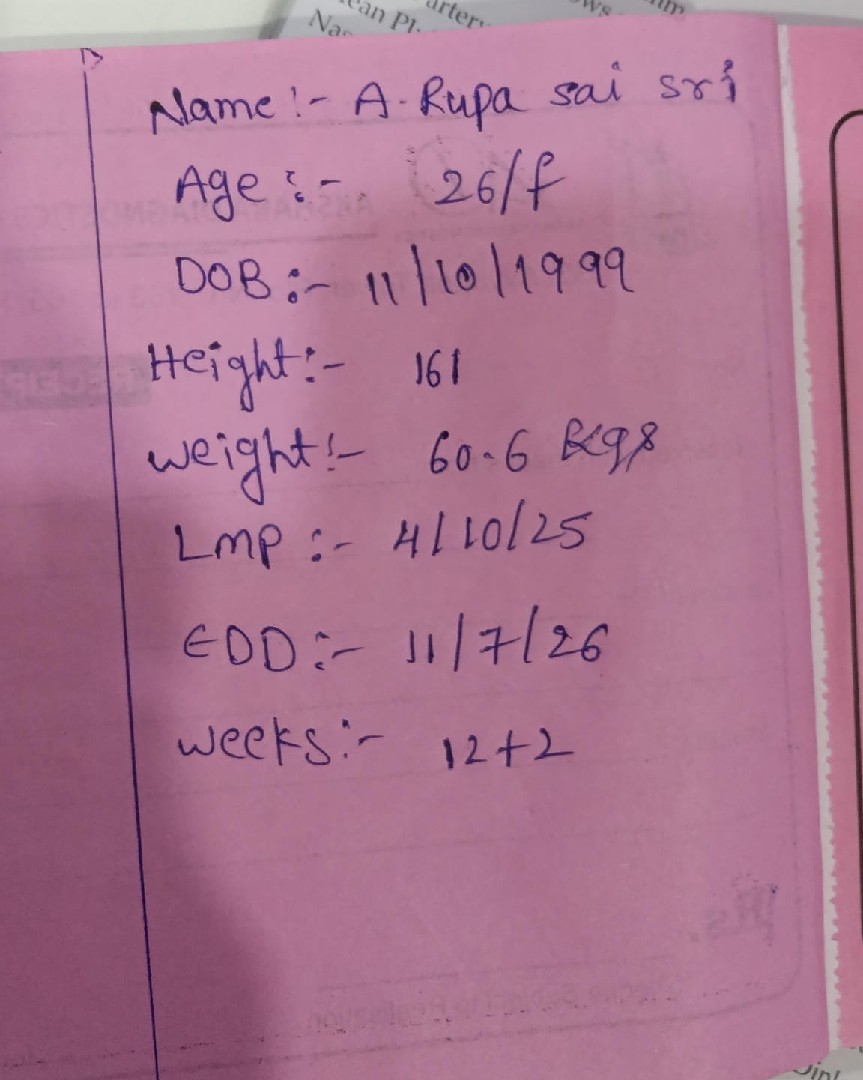 Name :- A. Rupa sai sri
Age :- 26/f
DOB :- 11/10/1999
Height :- 161
weight :- 60.6 kgs
LMP :- 4/10/25
EDD :- 11/7/26
weeks :- 12+2